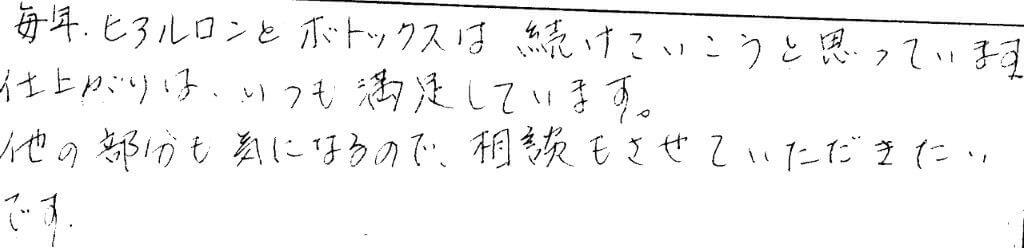 毎年、ヒアルロンとボトックスは続けていこうと思っています
仕上がりは、いつも満足しています。
他の部分も気になるので、相談もさせていただきたい
です。